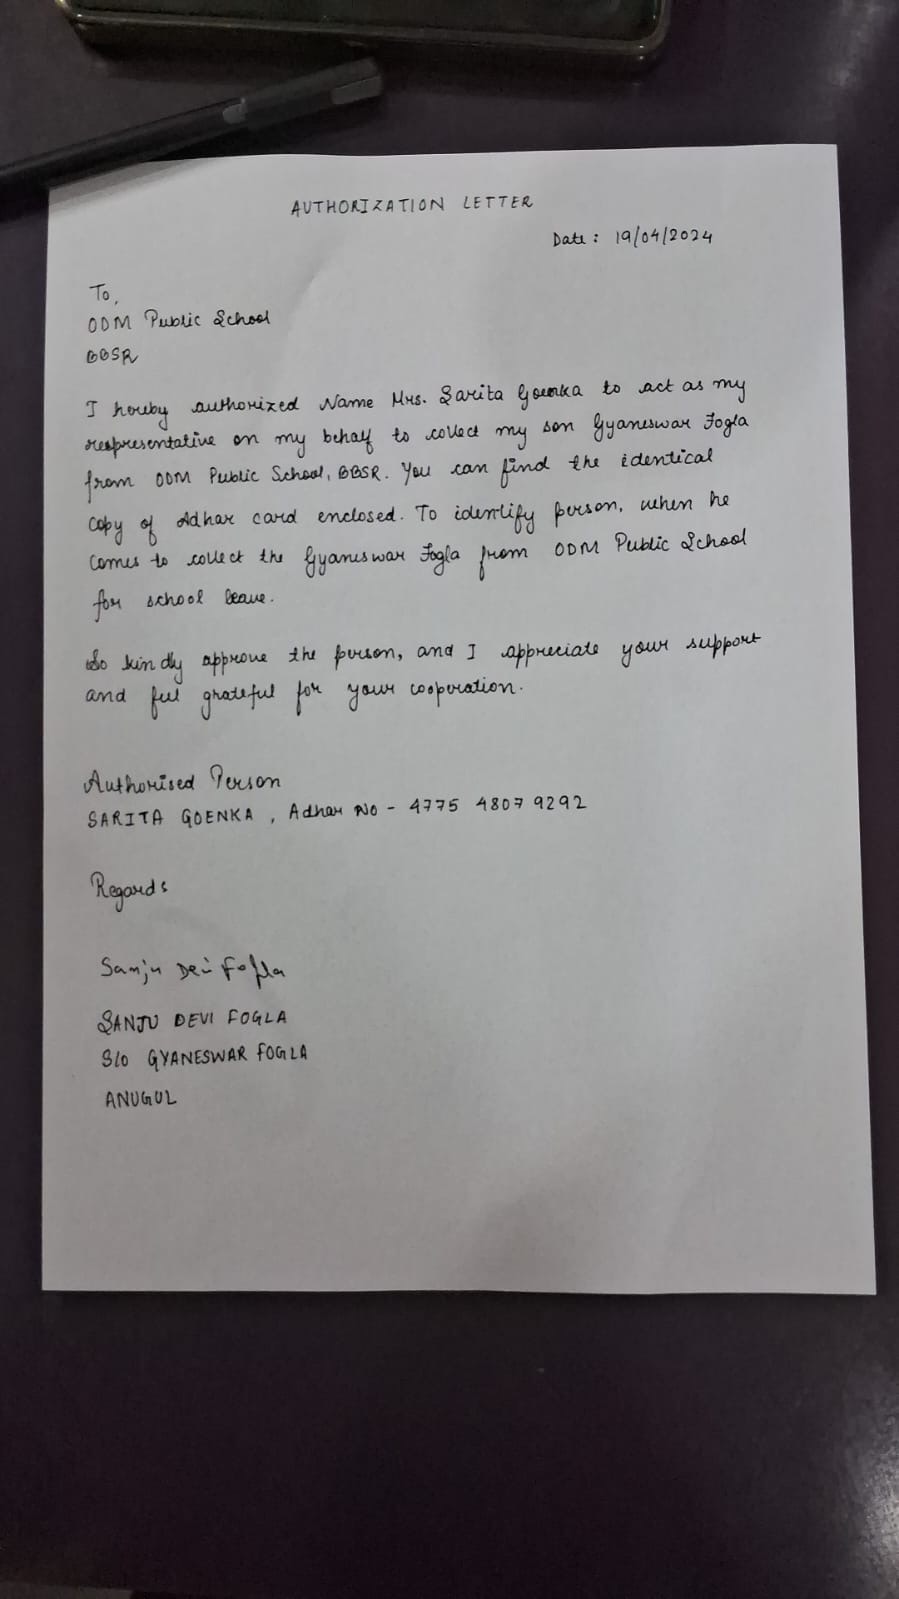 AUTHORIZATION LETTER
Date : 19/04/2024
To,
ODM Public School
BBSR
I hereby authorized Name Mrs. Sarita Goenka to act as my
respresentative on my behalf to collect my son Gyaneswar Fogla
from ODM Public School, BBSR. You can find the identical
copy of Adhar card enclosed. To identify person, when he
comes to collect the Gyaneswar Fogla from ODM Public School
for school leave.
So kindly approve the person, and I appreciate your support
and feel grateful for your cooperation.
Authorised Person
SARITA GOENKA , Adhar No - 4775 4807 9292
Regards
Sanju Devi Fogla
SANJU DEVI FOGLA
S/O GYANESWAR FOGLA
ANUGUL